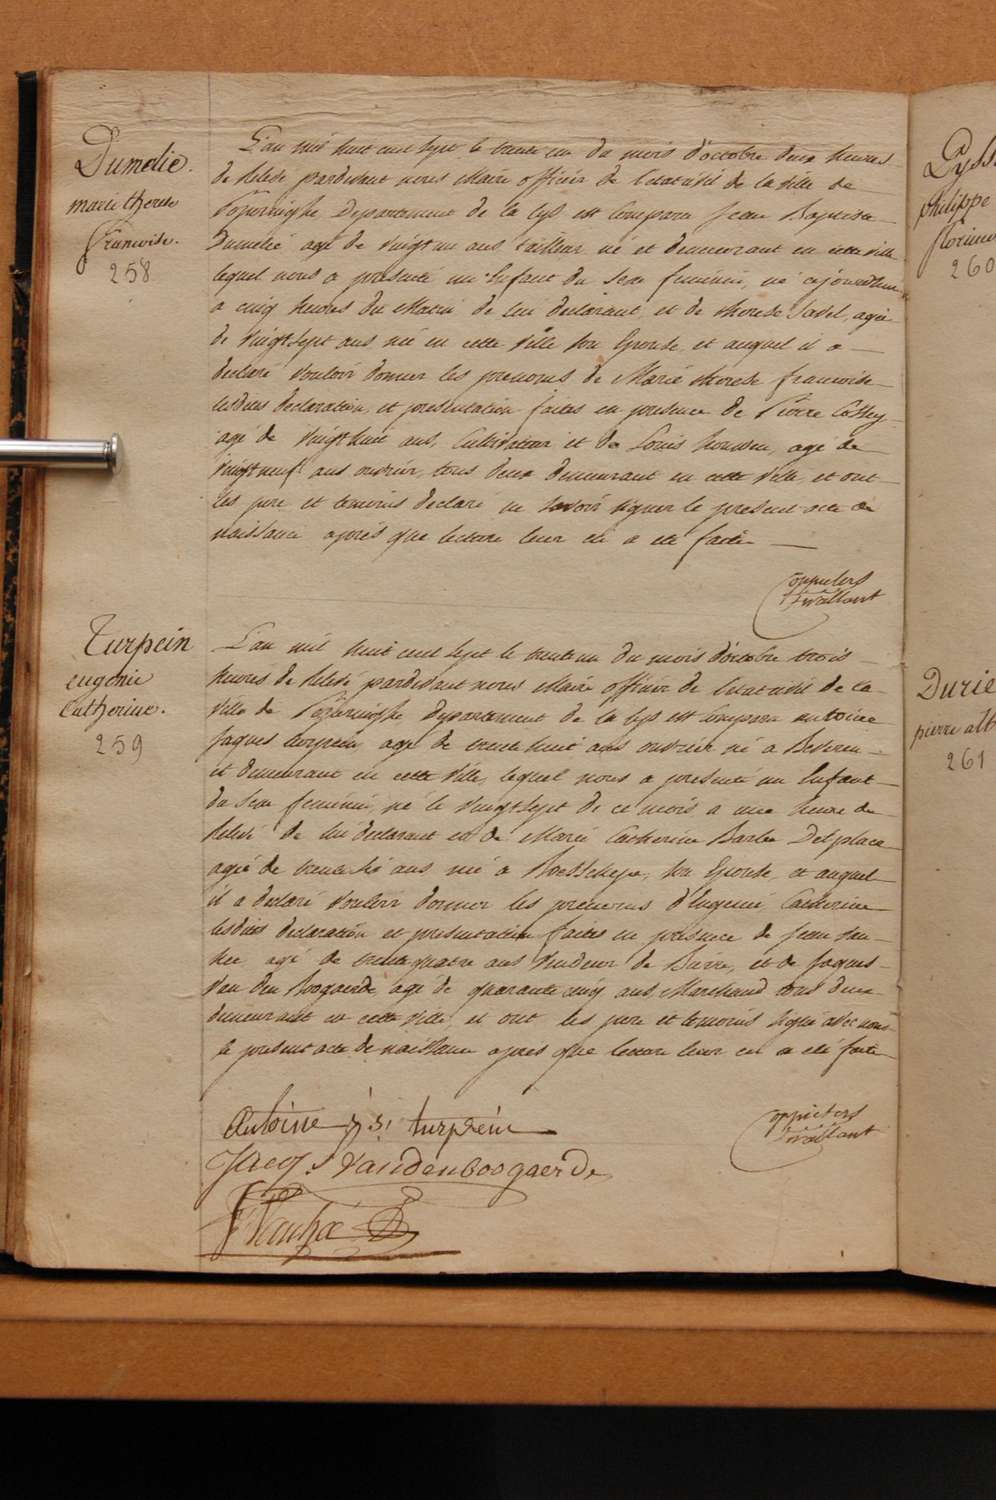 Dumelie.
marie therese
francoise.
258
L'an mil huit cent sept le trente un du mois d'octobre deux heures
de relevé pardevant nous Maire officier de l'etat civil de la ville de
Poperinghe, Departement de la Lys est comparu Jean Baptiste
Dumelié agé de vingt un ans tailleur né et demeurant en cette ville
lequel nous a presenté un Enfant du sexe feminin, né cejourdhui
a cinq heures du Matin de lui declarant, et de therese agée
de vingt sept ans née en cette ville son Epouse, et auquel il a
declaré vouloir donner les prenoms de Marie therese francoise
lesdites declaration et presentation faites en presence de Pierre
agé de vingt huit ans, Cultivateur et de Louis agé de
vingt neuf ans ouvrier, tous deux demeurant en cette ville, et ont
les pere et temoins declaré ne savoir signer le present acte de
naissance après que lecture leur en a été faite
Turpein
eugenie
Catherine.
259
L'an mil huit cent sept le trente un du mois d'octobre trois
heures de relevé pardevant nous Maire officier de l'etat civil de la
ville de Poperinghe departement de la Lys est comparu antoine
Jaques turpein, agé de trente huit ans ouvrier né a
et demeurant en cette ville, lequel nous a presenté un Enfant
du sexe feminin, né le vingt sept de ce mois a une heure de
relevé de lui declarant et de Marie Catherine Barbe Delplace
agée de trente ans née a son Epouse, et auquel
il a declaré vouloir donner les prenoms d'Eugenie Catherine
lesdites declaration et presentation faites en presence de Jean
agé de trente quatre ans vendeur de Bierre, et de Jaques
Van den Boogaerde agé de quarante cinq ans, Marchand tous deux
demeurant en cette ville, et ont les pere et temoins signé avec nous
le present acte de naissance après que lecture leur en a été faite
Antoine turpein
Jacqs Vandenboogaerde
philippe
260
Durie
pierre alb
261